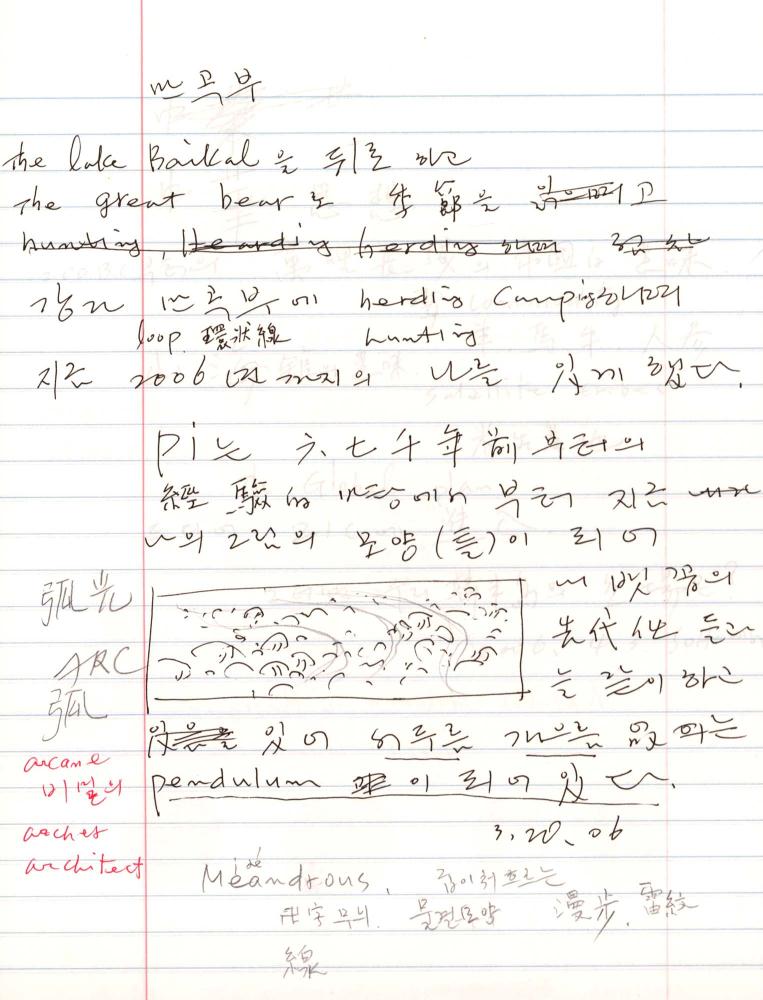 만곡부
the lake Baikal을 뒤로 하고
The great bear로 季節을 읽으며고
hunting, Hearding herding 하며
강가 만곡부에 herding Camping하며
loop. 環狀線 hunting
지금 2006년까지의 나를 있게 했다.
pi는 六七千年前부터의
經驗的 바탕에서부터 지금
나의 그림의 모양(들)이 되어
내 몇 꼽의
先代
하고
있어
pendulum이 되어 있다.
3.20.06
弧光
ARC
弧
arcane
비밀의
archer
architect
Méandrous, 굽이쳐흐르는
卍字무늬. 물결모양 漫步, 雷紋
線